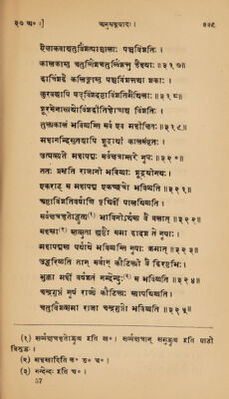 ३७ अ० ।] अनुषङ्गपादः ।
ऐक्ष्वाकवाश्चतुर्व्विंशत्पाञ्चालाः पञ्चविंशतिः ।
कालकास्तु चतुर्व्विंशच्चतुर्व्विंशत्तु हैहयाः ॥३१७॥
द्वात्रिंशद्वै कलिङ्गास्तु पञ्चविंशत्तथा शकाः ।
कुरवश्चापि षड्विंशदष्टाविंशतिमैथिलाः ॥३१८॥
शूरसेनास्त्रयोविंशद्वीतिहोत्राश्च विंशतिः ।
तुल्यकालं भविष्यन्ति सर्व्व एव महीक्षितः ॥३१९॥
महानन्दिसुतश्चापि शूद्रायां कालसंवृतः ।
उत्पत्स्यते महापद्मः सर्व्वक्षत्रान्तरे नृपः ॥३२०॥
ततः प्रभृति राजानो भविष्याः शूद्रयोनयः ।
एकराट् स महापद्म एकच्छत्रो भविष्यति ॥३२१॥
अष्टाविंशतिवर्षाणि पृथिवीं पालयिष्यति ।
सर्व्वक्षत्रहृतोद्धृत्य(१) भाविनोऽर्थस्य वै बलात् ॥३२२॥
सहस्रा(२) स्तत्सुता ह्यष्टौ समा द्वादश ते नृपाः ।
महापद्मस्य पर्य्याये भविष्यन्ति नृपाः क्रमात् ॥३२३॥
उद्धरिष्यति तान् सर्व्वान् कौटिल्यो वै द्विरष्टभिः ।
भुक्त्वा महीं वर्षशतं नन्देन्दुः(३) स भविष्यति ॥३२४॥
चन्द्रगुप्तं नृपं राज्ये कौटिल्यः स्थापयिष्यति ।
चतुर्व्विंशत्समा राजा चन्द्रगुप्तो भविष्यति ॥३२५॥
(१) सर्व्वक्षत्रहतोद्धृत्य इति ख० । सर्व्वक्षत्रान् समुद्धृत्य इति पाठो
विशुद्धः ।
(३) नन्देन्दः इति घ० ।
57